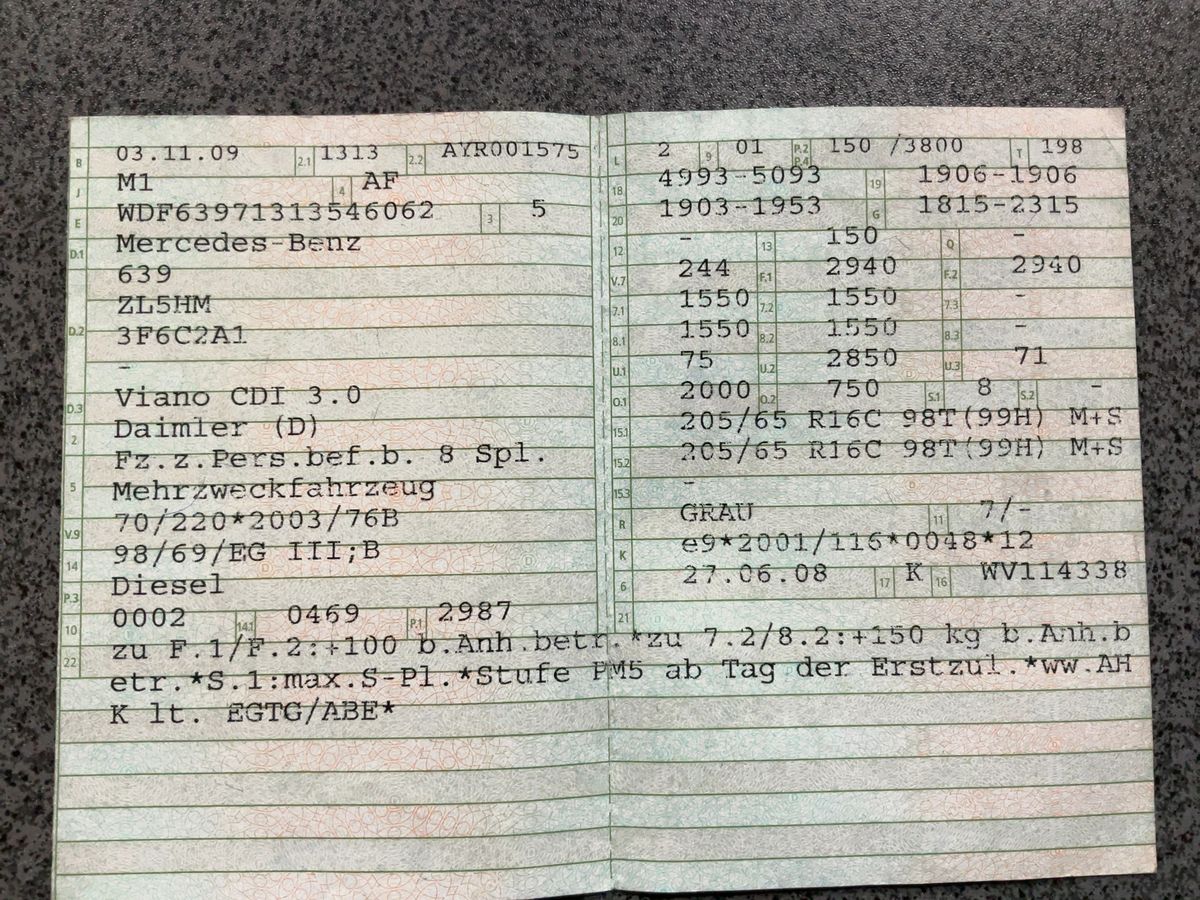 B 03.11.09 2.1 1313 2.2 AYR001575
J M1 4 AF
E WDF63971313546062 3 5
D.1 Mercedes-Benz
639
D.2 ZL5HM
3F6C2A1
-
D.3 Viano CDI 3.0
2 Daimler (D)
5 Fz.z.Pers.bef.b. 8 Spl.
Mehrzweckfahrzeug
V.9 70/220*2003/76B
14 98/69/EG III;B
P.3 Diesel
10 0002 14.1 0469 P.1 2987
L 2 9 01 P.2 P.4 150 /3800 T 198
18 4993-5093 19 1906-1906
20 1903-1953 G 1815-2315
12 - 13 150 Q -
V.7 244 F.1 2940 F.2 2940
7.1 1550 7.2 1550 7.3 -
8.1 1550 8.2 1550 8.3 -
U.1 75 U.2 2850 U.3 71
O.1 2000 O.2 750 S.1 8 S.2 -
15.1 205/65 R16C 98T(99H) M+S
15.2 205/65 R16C 98T(99H) M+S
15.3 -
R GRAU 11 7/-
K e9*2001/116*0048*12
6 27.06.08 17 K 16 WV114338
21
22 zu F.1/F.2:+100 b.Anh.betr.*zu 7.2/8.2:+150 kg b.Anh.b
etr.*S.1:max.S-Pl.*Stufe PM5 ab Tag der Erstzul.*ww.AH
K lt. EGTG/ABE*